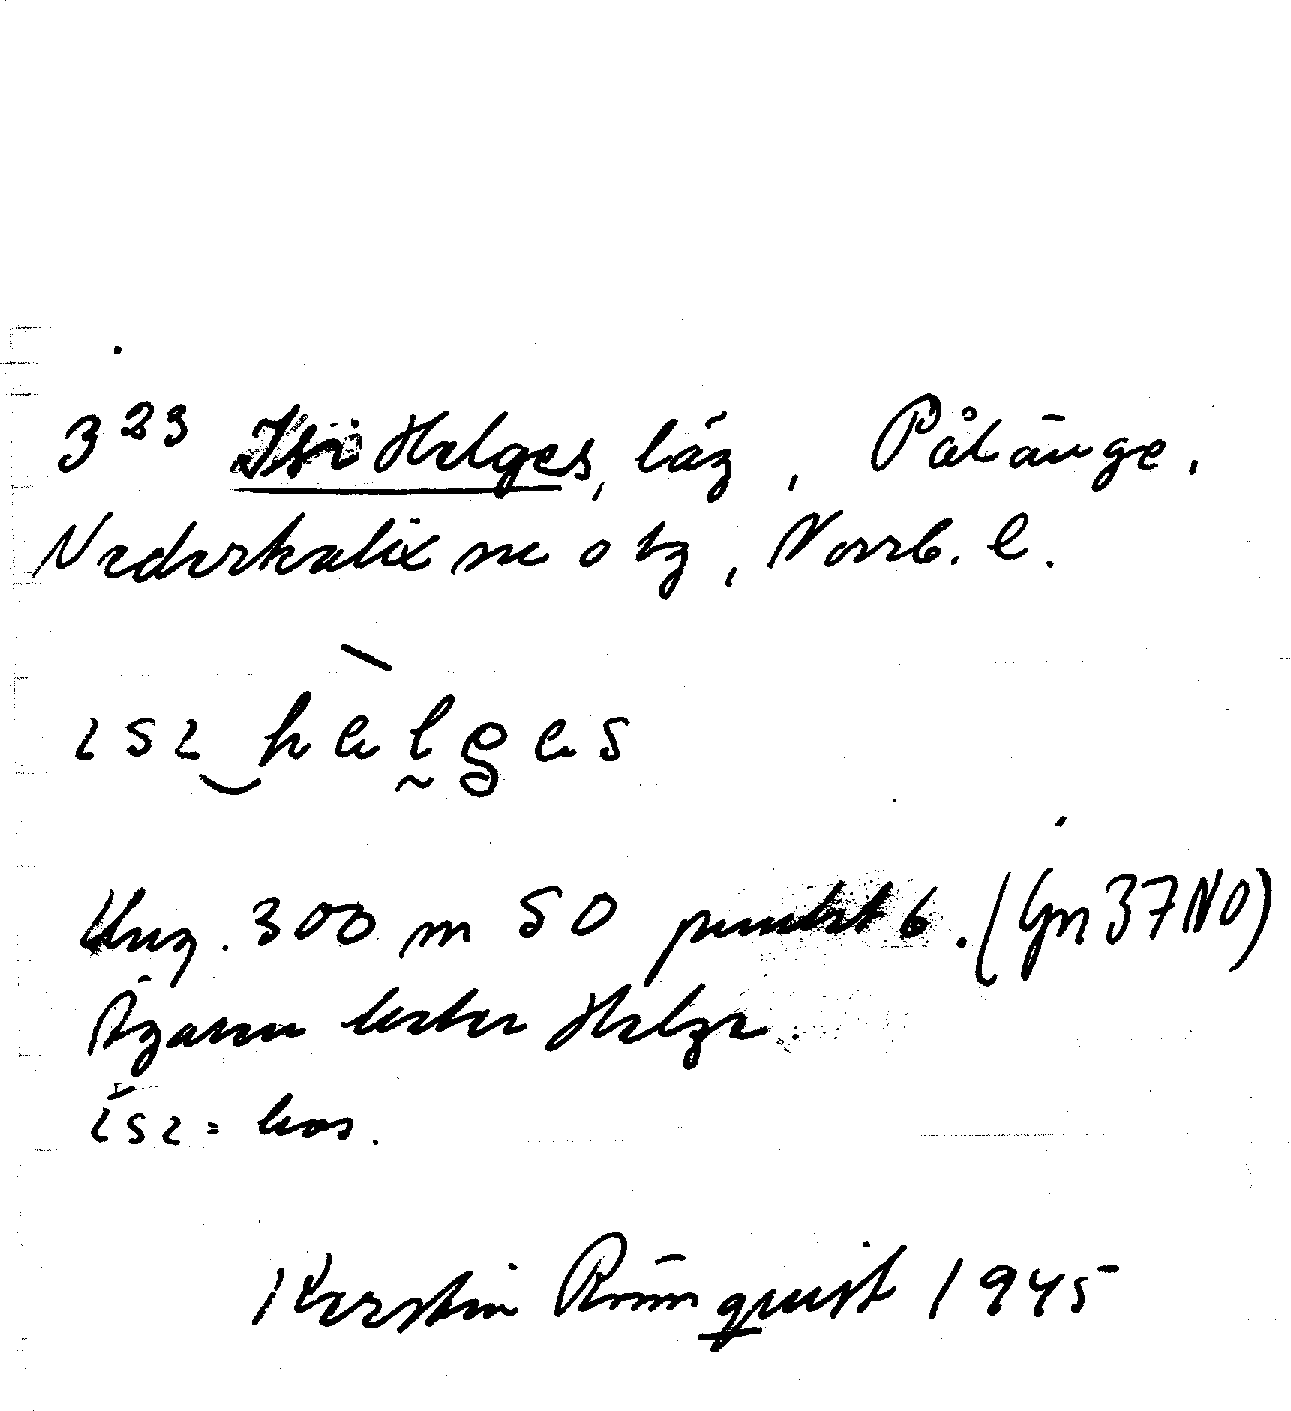 3²³ Isi Helges, läg, Pålänge,
Nederkalix sn o tg, Norrb. l.
ısı hęlges
Ung. 300 m SO punkt 6. (Gm 37 NO)
Ägaren heter Helge.
ısı = hos.
Kerstin Rönnquist 1945